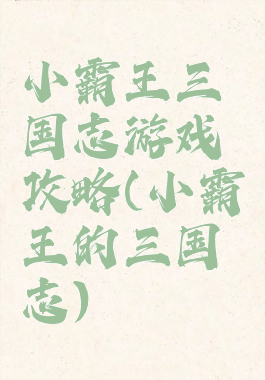 小霸王三
国志游戏
攻略(小霸
王的三国
志)